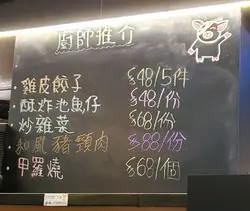 廚師推介
雞皮餃子 $48/5件
酥炸池魚仔 $48/份
炒雜菜 $68/份
和風豬頸肉 $88/份
甲羅燒 $68/個